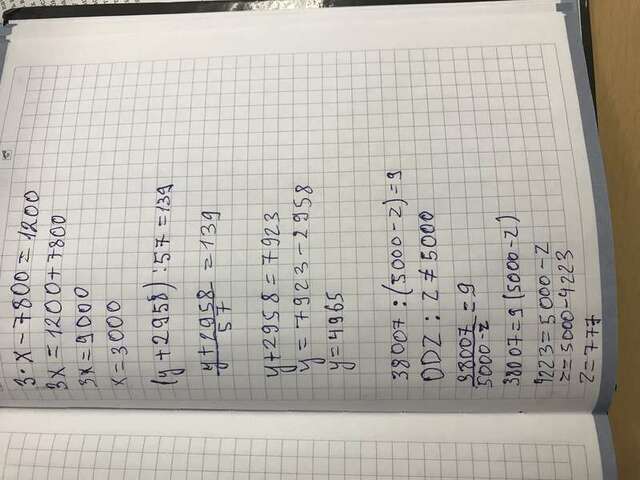 3·x-7800=1200
3x=1200+7800
3x=9000
x=3000
(y+2958):57=139
y+2958
57
=139
y+2958=7923
y=7923-2958
y=4965
38007:(5000-z)=9
ODZ: z≠5000
38007
5000-z
=9
38007=9(5000-z)
4223=5000-z
z=5000-4223
z=777